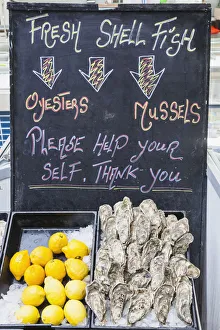 FRESH SHELL FISH
OYESTERS
MUSSELS
PLEASE HELP YOUR
SELF. THANK YOU